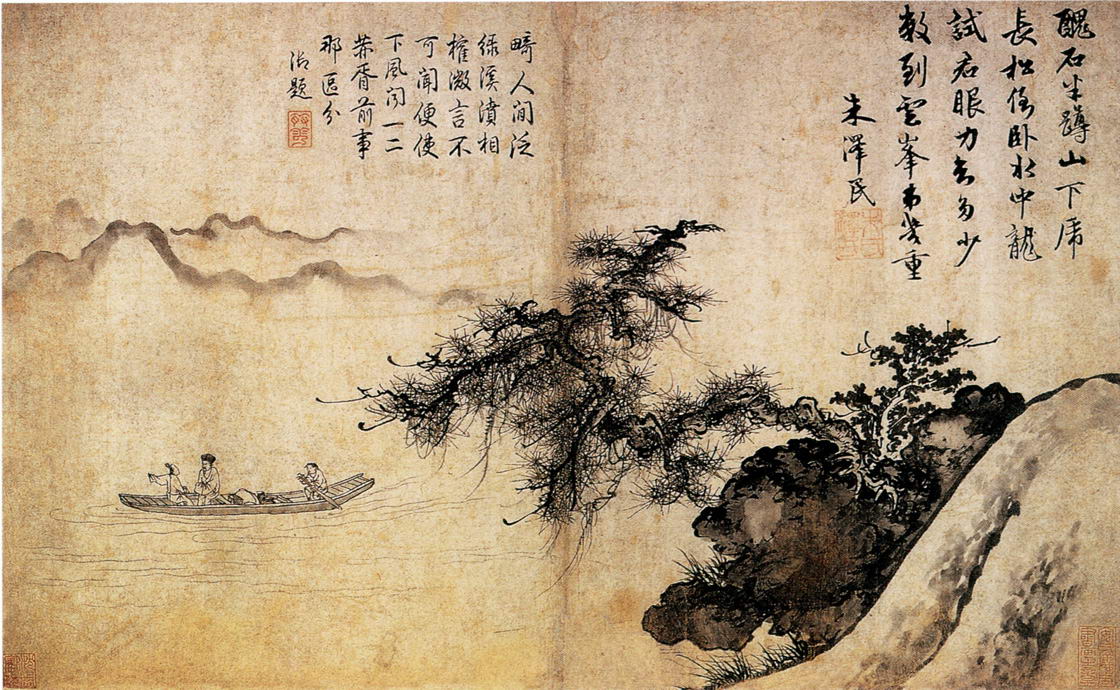 醜石半蹲山下虎
長松倒卧水中龍
試君眼力知多少
數到雲峯第幾重
朱澤民
畸人間泛
綠溪濆相
榷微言不
可聞便使
下風聞一二
華胥前事
那區分
御題